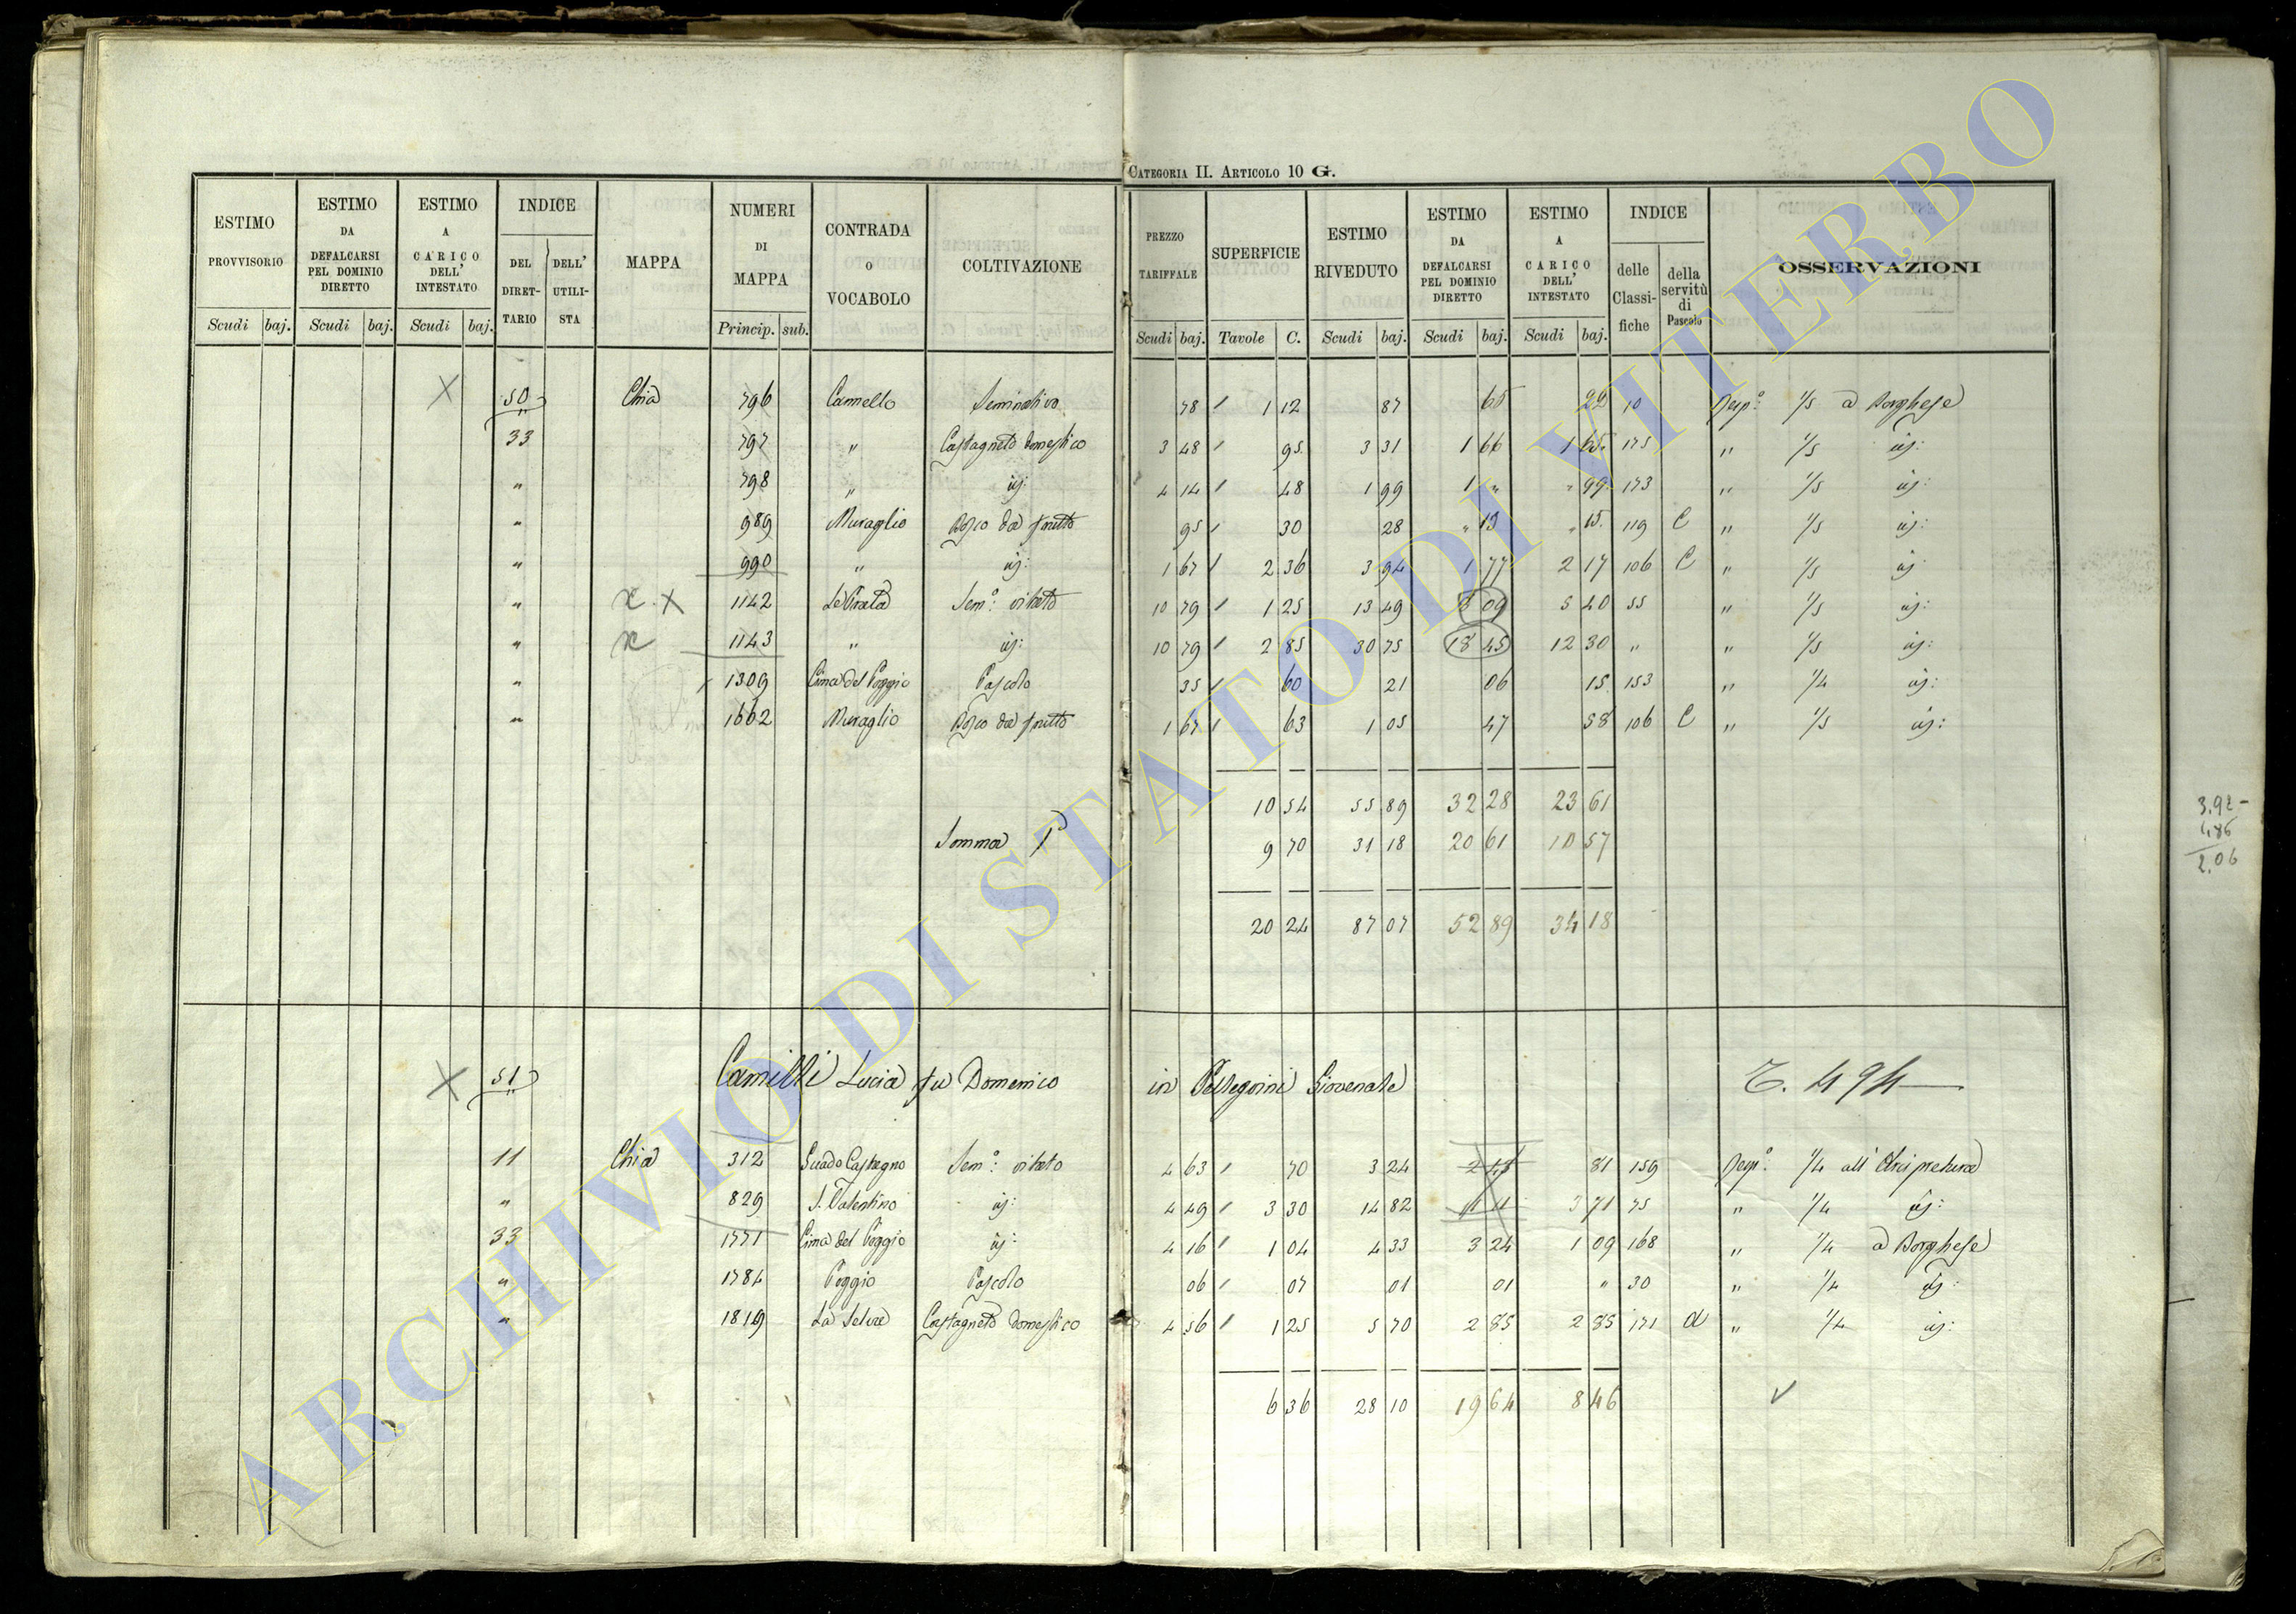 CATEGORIA II. ARTICOLO 10 G.
ESTIMO PROVVISORIO Scudi baj. ESTIMO DA DEFALCARSI PEL DOMINIO DIRETTO Scudi baj. ESTIMO A CARICO DELL' INTESTATO Scudi baj. INDICE DEL DIRETTARIO DELL' UTILISTA MAPPA NUMERI DI MAPPA Princip. sub. CONTRADA O VOCABOLO COLTIVAZIONE PREZZO TARIFFALE Scudi baj. SUPERFICIE Tavole C. ESTIMO RIVEDUTO Scudi baj. ESTIMO DA DEFALCARSI PEL DOMINIO DIRETTO Scudi baj. ESTIMO A CARICO DELL' INTESTATO Scudi baj. INDICE delle Classifiche della servitù di Pascolo OSSERVAZIONI
X 50 Chia 796 Cannello Seminativo 78 1 12 87 65 22 10 Resp.o 1/5 a Borghese
33 797 " Castagneto domestico 3 48 95 3 31 1 66 1 65 175 " 1/5 id:
" 798 " id: 4 14 48 1 99 1 " " 99 173 " 1/5 id:
" 989 Muraglio Bosco da frutto 95 30 28 " 13 " 15 119 C " 1/5 id:
" 990 " id: 1 67 2 36 3 94 1 77 2 17 106 C " 1/5 id
x X " 1142 Le Prata Sem.o vitato 10 79 1 25 13 49 8 09 5 40 55 " 1/5 id:
x " 1143 " id: 10 79 2 85 30 75 18 45 12 30 " " 1/5 id:
" 1309 Cima del Poggio Pascolo 35 60 21 06 15 153 " 1/4 id:
" 1662 Muraglio Bosco da frutto 1 67 63 1 05 47 58 106 C " 1/5 id:
10 54 55 89 32 28 23 61
Somma 9 70 31 18 20 61 10 57
20 24 87 07 52 89 34 18
3.92 -
1.86
2.06
X 51 Camilli Lucia fu Domenico in Pellegrini Giovenale T. 494
11 Chia 312 Guado Castagno Sem.o vitato 4 63 70 3 24 2 43 81 159 Resp.o 1/4 all' Arcipretura
" 829 S. Valentino id: 4 49 3 30 14 82 11 11 3 71 75 " 1/4 id:
33 1771 Cima del Poggio id: 4 16 1 04 4 33 3 24 1 09 168 " 1/4 a Borghese
" 1784 Poggio Pascolo 06 07 01 01 " 30 " 1/4 id:
" 1819 La Selva Castagneto domestico 4 56 1 25 5 70 2 85 2 85 171 a " 1/4 id:
6 36 28 10 19 64 8 46
ARCHIVIO DI STATO DI VITERBO